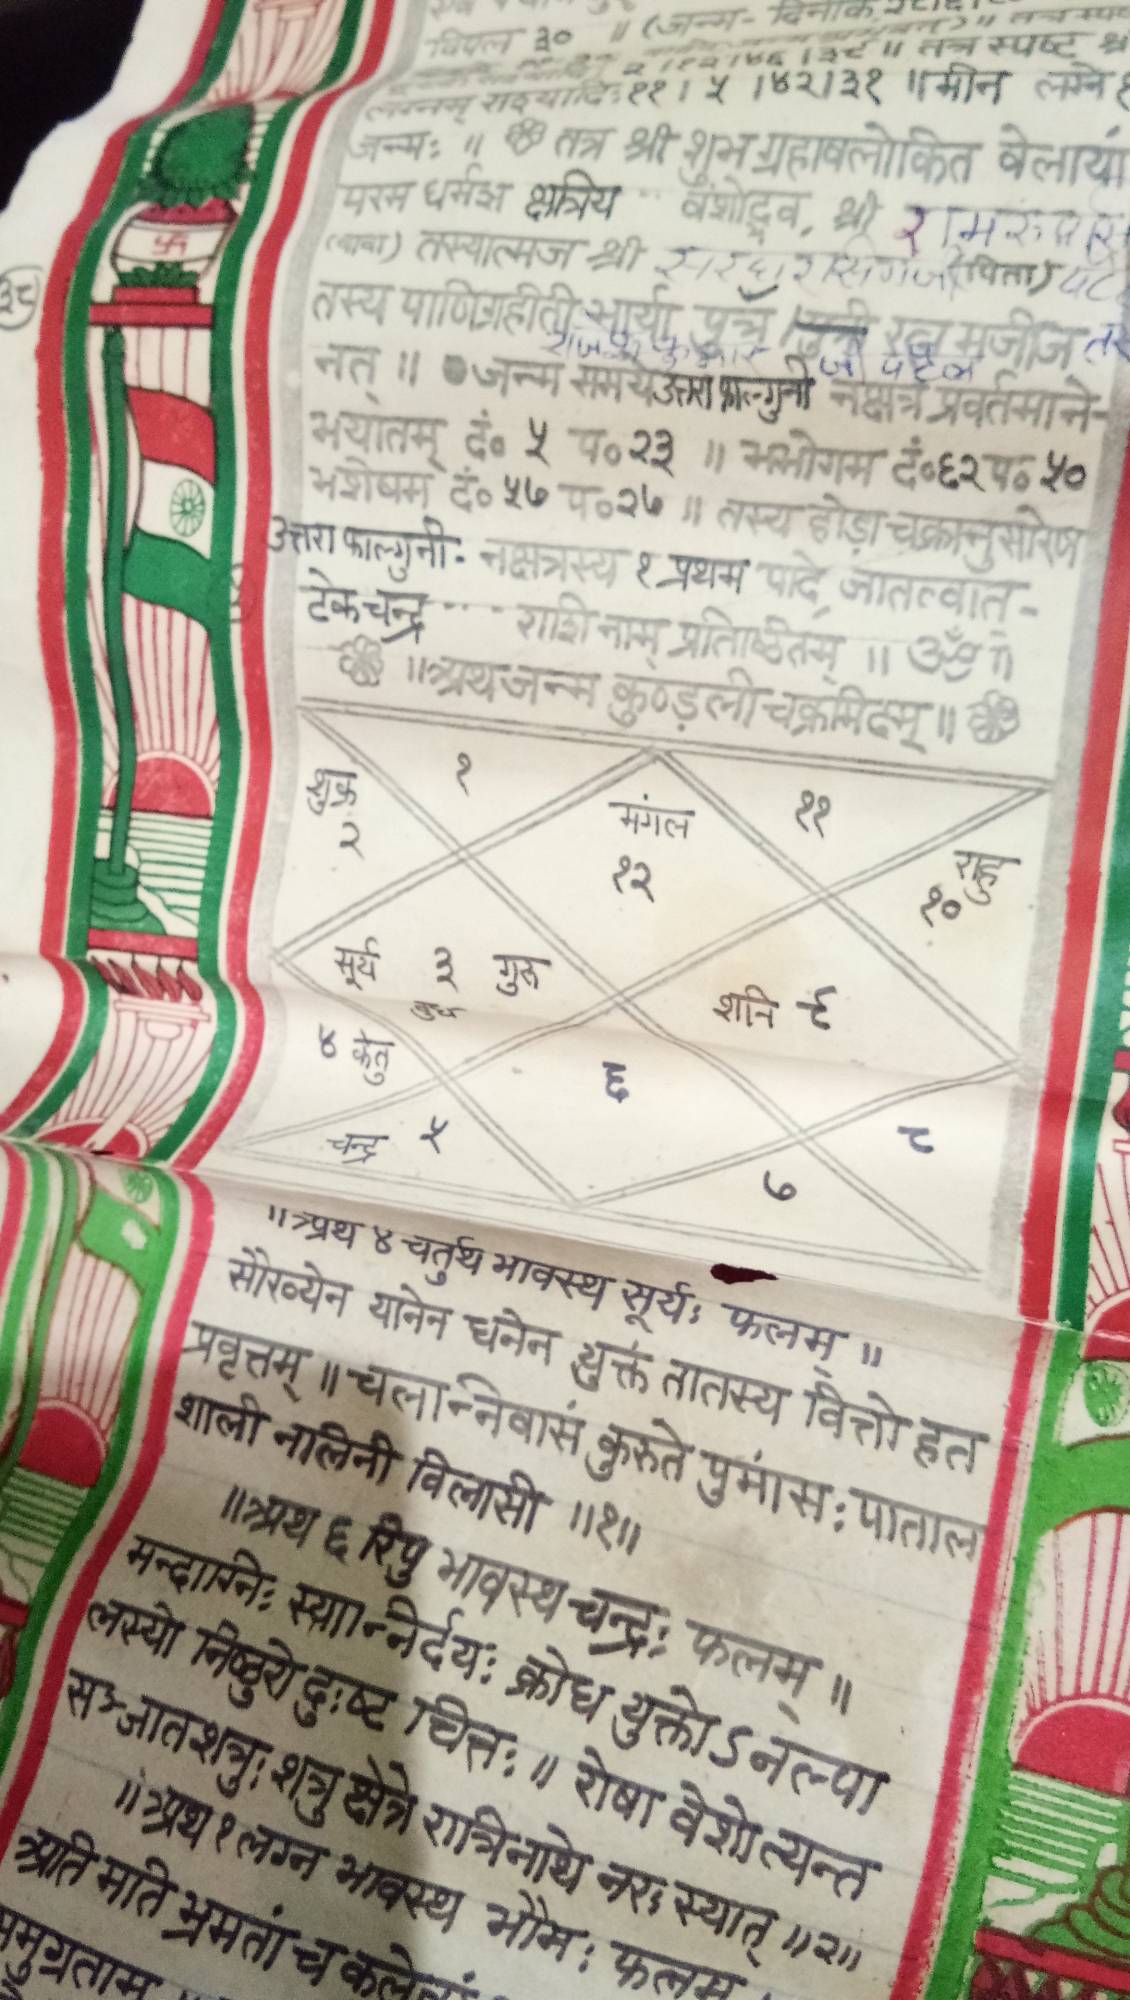 विपल ३० ॥ (जन्म- दिनांक
॥ तत्र स्पष्ट श्र
लग्नम् राश्यादिः ११। ५ ।४२।३१ ॥मीन लग्ने
जन्मः ॥ तत्र श्री शुभ ग्रहावलोकित वेलायां
परम धर्मज्ञ क्षत्रिय वंशोद्भव, श्री
(बाबा) तस्यात्मज श्री (पिता)
तस्य पाणिग्रहीती भार्या पुत्र रत्न मजीज
नत् ॥ जन्म समये उत्तरा फाल्गुनी नक्षत्र प्रवर्तमाने-
भयातम् दं० ५ प० २३ ॥ भभोगम दं० ६२ प० ५०
भशेषम दं० ५७ प० २७ ॥ तस्य होड़ा चक्रानुसारेण
उत्तरा फाल्गुनी- नक्षत्रस्य १ प्रथम पादे जातत्वात्-
टेकचन्द्र ---- राशि नाम् प्रतिष्ठितम् ॥ ॐ ॥
॥अथ जन्म कुण्ड़ली चक्रमिदम् ॥
शुक्र
२
१
मंगल
१२
११
राहु
१०
सूर्य ३ गुरु
बुध
शनि ९
४ केतु
६
चन्द्र ५
७
८
॥अथ ४ चतुर्थ भावस्थ सूर्यः फलम् ॥
सौख्येन यानेन धनेन युक्तं तातस्य वित्तो हत
प्रवृत्तम् ॥ चलान्निवासं कुरुते पुमांसः पाताल
शाली नालिनी विलासी ॥१॥
॥अथ ६ रिपु भावस्थ चन्द्रः फलम् ॥
मन्दाग्निः स्यान्निर्दयः क्रोध युक्तोऽनल्पा
लस्यो निष्ठुरो दुःष्ट चित्तः ॥ रोषा वेशोत्यन्त
सञ्जातशत्रुः शत्रु क्षेत्रे रात्रिनाथे नरः स्यात् ॥२॥
॥अथ १ लग्न भावस्थ भौमः फलम
अति मति भ्रमतां च कलेवरं